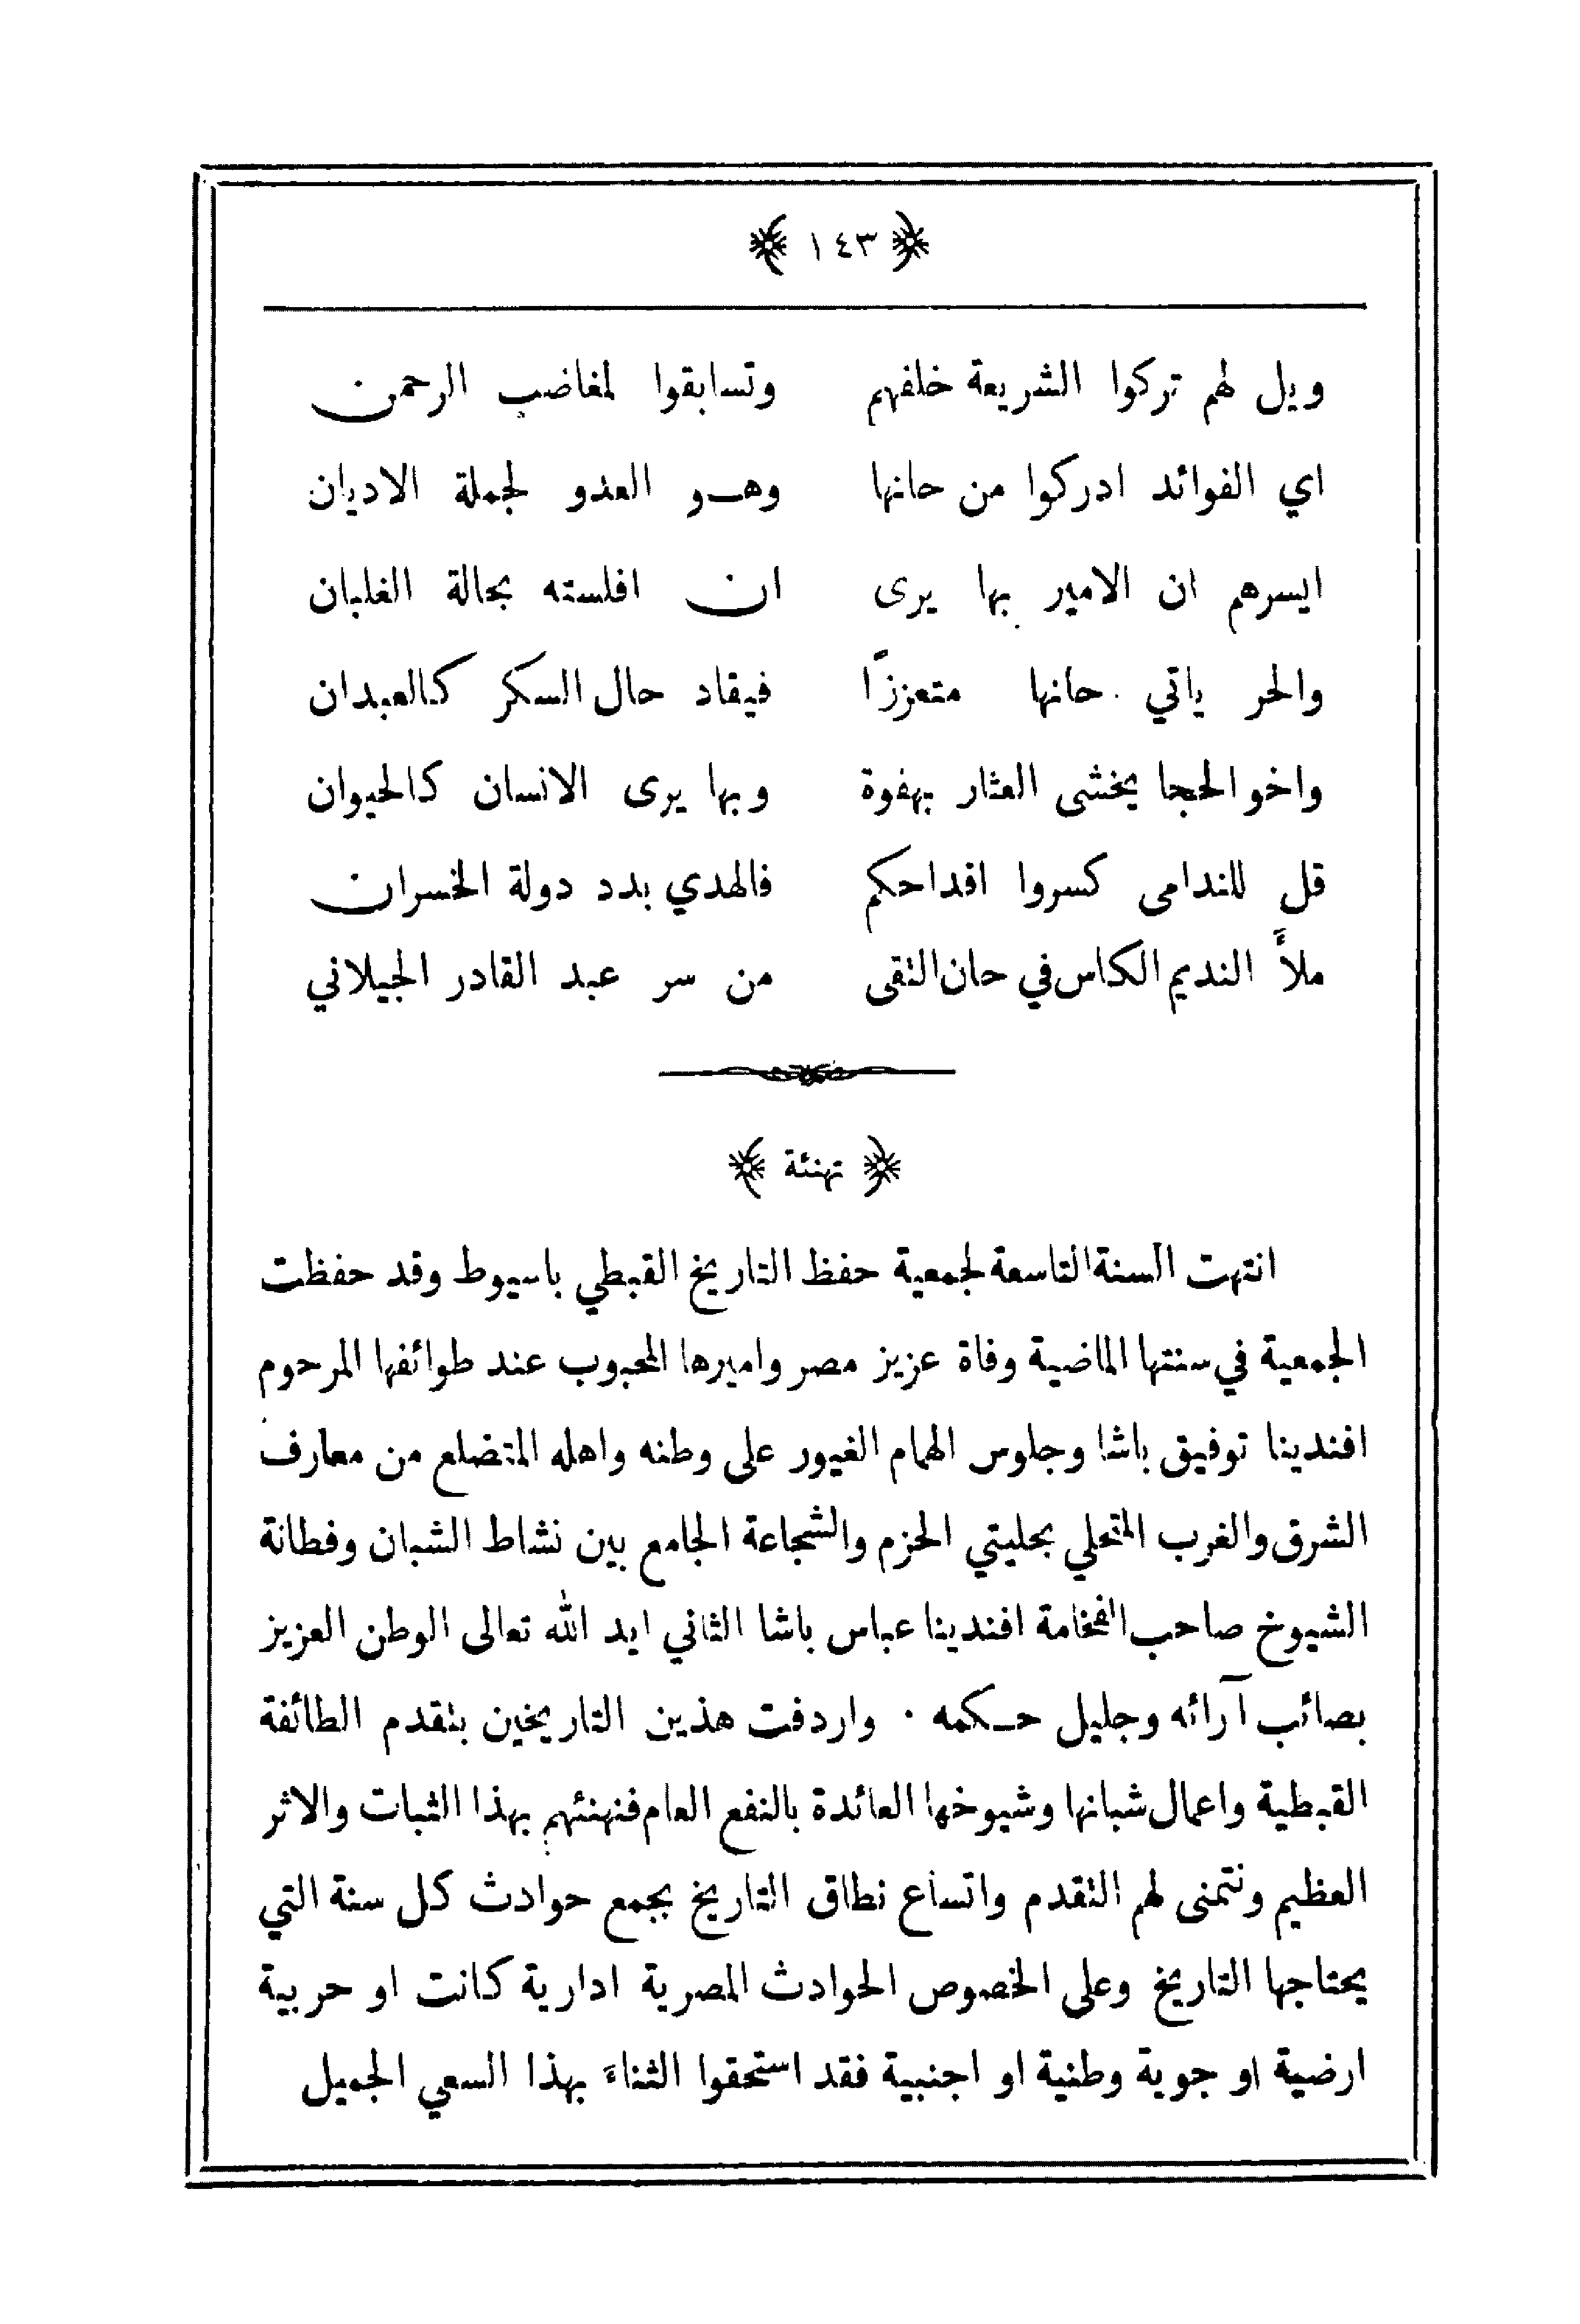 ١٤٣
ويل لهم تركوا الشريعة خلفهم وتسابقوا لمغاضب الرحمن
اي الفوائد ادركوا من حانها وهو العدو لجملة الاديان
ايسرهم ان الامير بها يرى ان افلسته بحالة الغلبان
والحر ياتي حانها متعززًا فيقاد حال السكر كالعبدان
واخو الحجا يخشى العثار بهفوة وبها يرى الانسان كالحيوان
قل للندامى كسروا اقداحكم فالهدي بدد دولة الخسران
ملأَ النديم الكاس في حان التقى من سر عبد القادر الجيلاني
تهنئة
انتهت السنة التاسعة لجمعية حفظ التاريخ القبطي باسيوط وقد حفظت
الجمعية في سنتها الماضية وفاة عزيز مصر واميرها المحبوب عند طوائفها المرحوم
افندينا توفيق باشا وجلوس الهمام الغيور على وطنه واهله المتضلع من معارف
الشرق والغرب المتحلي بحليتي الحزم والشجاعة الجامع بين نشاط الشبان وفطانة
الشيوخ صاحب الفخامة افندينا عباس باشا الثاني ايد الله تعالى الوطن العزيز
بصائب آرائه وجليل حكمه · واردفت هذين التاريخين بتقدم الطائفة
القبطية واعمال شبانها وشيوخها العائدة بالنفع العام فنهنئهم بهذا الثبات والاثر
العظيم ونتمنى لهم التقدم واتساع نطاق التاريخ بجمع حوادث كل سنة التي
يحتاجها التاريخ وعلى الخصوص الحوادث المصرية ادارية كانت او حربية
ارضية او جوية وطنية او اجنبية فقد استحقوا الثناءَ بهذا السعي الجميل